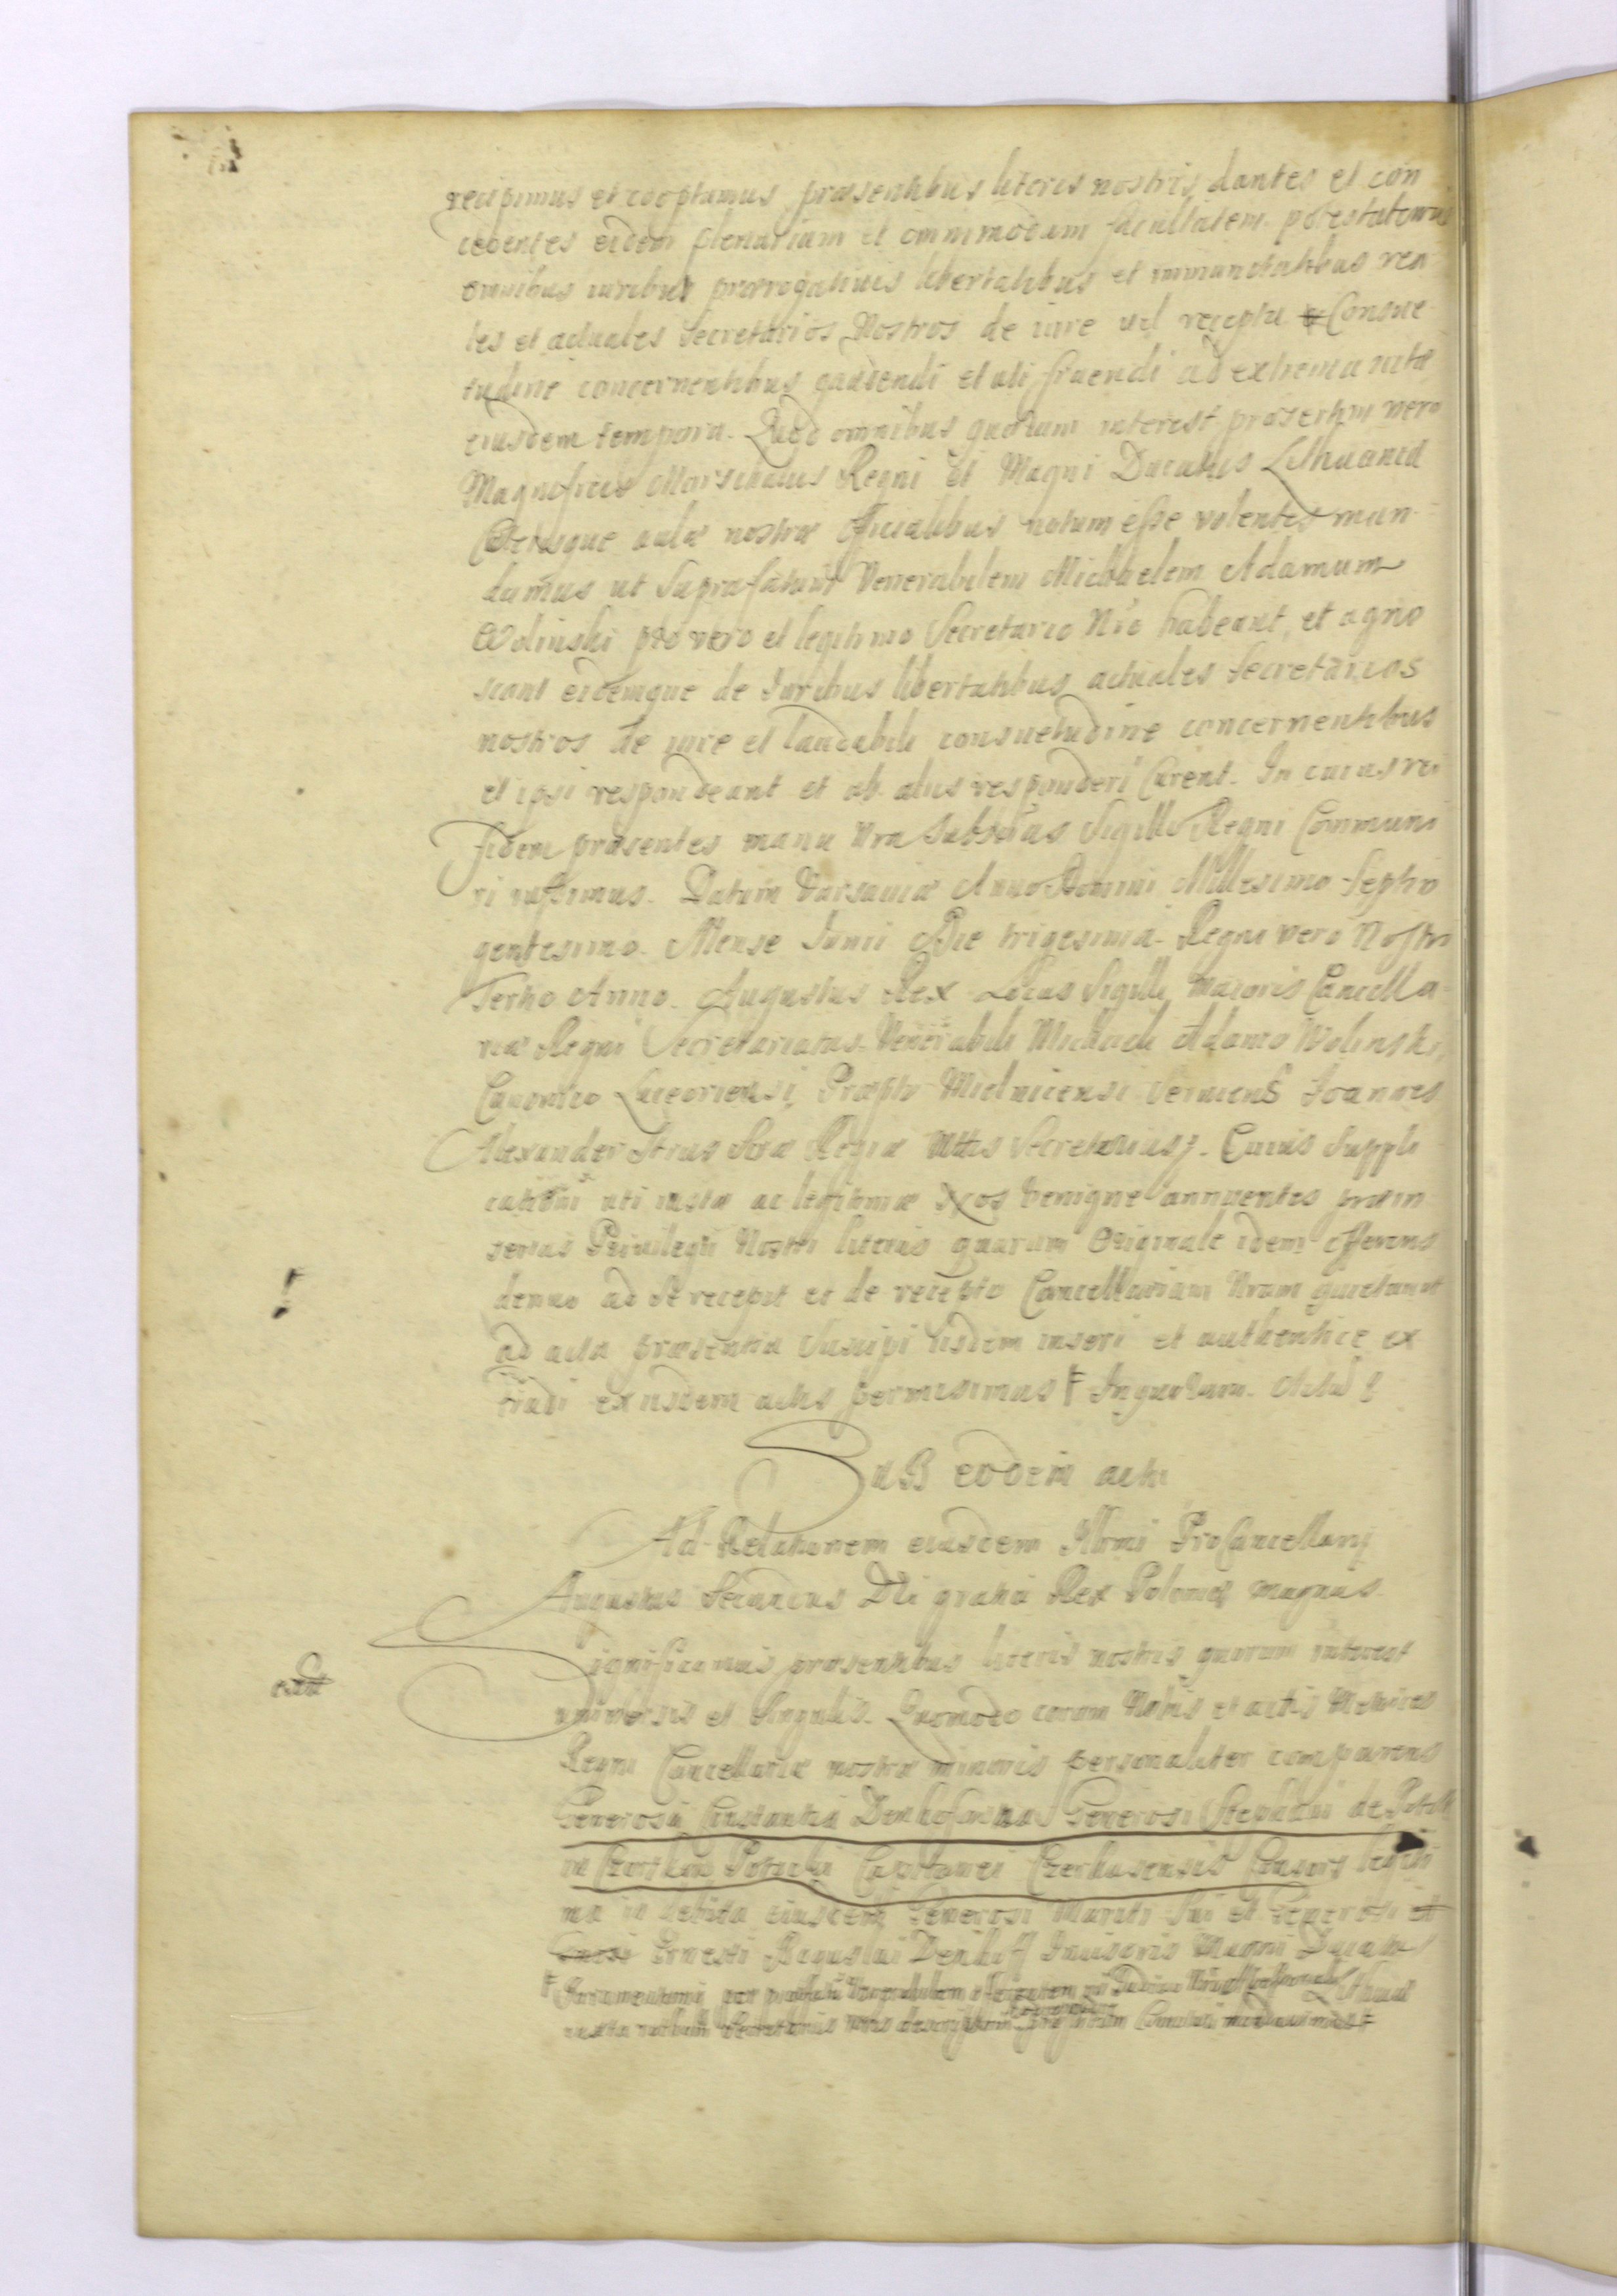 recipimus et cooptamus præsentibus literis nostris, dantes et con
cedentes eidem plenariam et omnimodam facultatem potestatemq
omnibus iuribus prærogativis libertatibus et immunitatibus rea
les et actuales Secretarios Nostros de iure vel recepta Consue
tudine concernentibus gaudendi et uti fruendi ad extrema vitæ
eiusdem tempora. Quod omnibus quorum interest præsertim vero
Magnificis Marschalcis Regni et Magni Ducatus Lithuaniæ
Cæterisque aulæ nostræ Officialibus notum esse volentes man
damus ut Suprafatum Venerabilem Michaelem Adamum
Wolinski pro vero et legitimo Secretario Nro habeant, et agno
scant eidemque de Iuribus libertatibus actuales Secretarios
nostros de iure et laudabili consuetudine concernentibus
et ipsi respondeant et ab aliis responderi Curent. In cuius rei
fidem præsentes manu Nra Subscriptas Sigillo Regni Communi
ri iussimus. Datum Varsaviæ Anno Domini Millesimo Septin
gentesimo. Mense Iunii Die trigesima. Regni vero Nostri
Tertio Anno. Augustus Rex Locus Sigilli maioris Cancella
riæ Regni Secretariatus Venerabili Michaeli Adamo Wolinski,
Canonico Luceoriensi, Præpto Mielnicensi Serviens Ioannes
Alexander Strus Sacræ Regiæ Mttis Secretarius. Cuius Suppli
cationi uti iustæ ac legitimæ Nos benigne annuentes præin
sertas Privilegii Nostri literas quarum Originale idem offerens
denuo ad se recepit et de recepto Cancellariam Nram quietavit
ad acta præsentia Suscipi iisdem inseri et authentice ex
tradi ex iisdem actis permisimus Ŧ In quorum. Actu
Sub eodem actu
Ad Relationem eiusdem Illmi ProCancellarij
Augustus Secundus Dei gratia Rex Poloniæ magnus
Significamus præsentibus literis nostris quorum interest
universis et Singulis. Quomodo coram Nobis et actis Metrices
Regni Cancellariæ nostræ minoris personaliter comparens
Generosa Constantia Generosi Stephani de Potok
Potocki Capitanei Consors legiti
ma eiusdem Generosi Mariti Sui et Generosi et
Ernesti Denhoff Magni Ducatus
Ŧ Iuramentum per